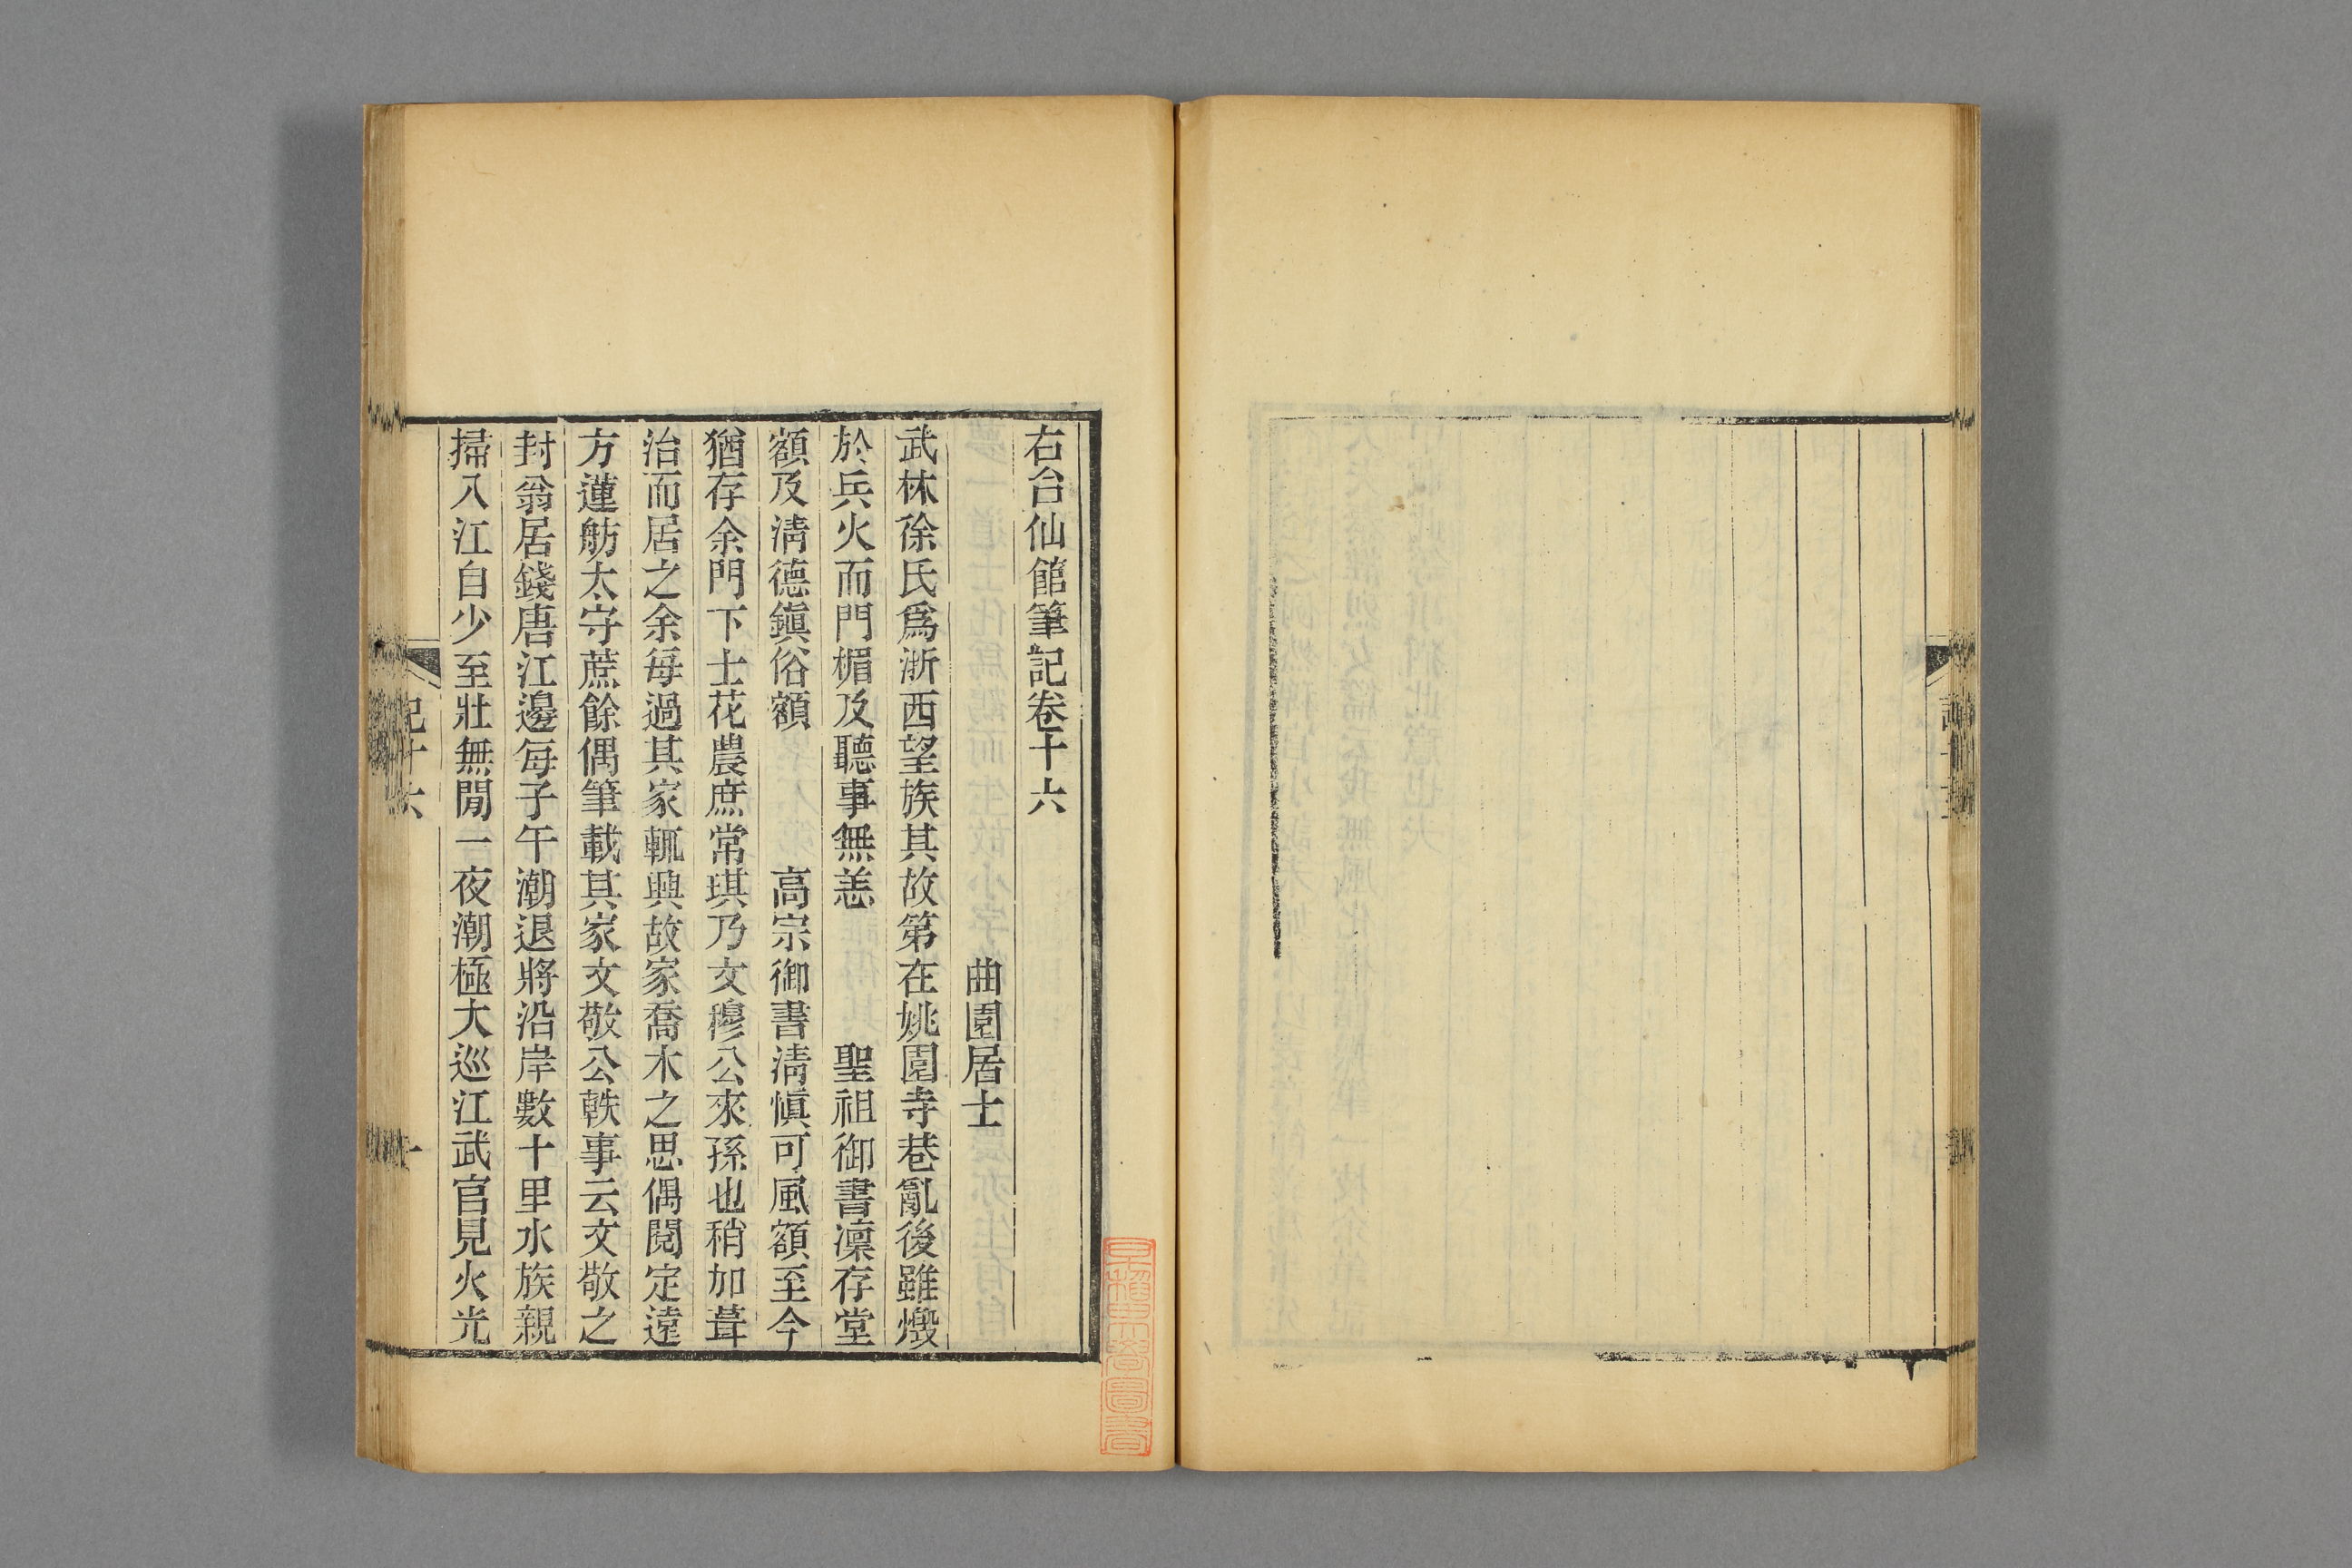 右台仙館筆記卷十六
曲園居士
武林徐氏爲浙西望族其故第在姚園寺巷亂後雖燬
於兵火而門楣及聽事無恙　聖祖御書凜存堂
額及淸德鎭俗額　高宗御書淸愼可風額至今
猶存余門下士花農庶常琪乃文穆公來孫也稍加葺
治而居之余每過其家輒興故家喬木之思偶閱定遠
方蓮舫太守蔗餘偶筆載其家文敬公軼事云文敬之
封翁居錢唐江邊每子午潮退將沿岸數十里水族親
掃入江自少至壯無閒一夜潮極大巡江武官見火光
記十六
一